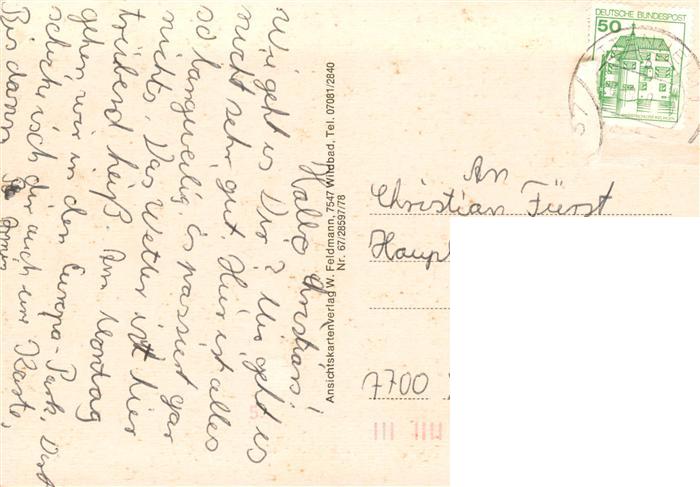 Hallo Christian!
Wie geht is Dir? Mir geht is
nicht sehr gut. Hier ist alles
so langweilig. Es passiert gar
nichts. Das Wetter ist hier
trübend heiß. Am Montag
gehen wir in den Europa-Park. Dort
schicke isch dir auch eine Karte,
Bis dann
Ansichtskartenverlag W. Feldmann, 7547 Wildbad, Tel. 07081/2840
Nr. 67/28597/78
DEUTSCHE BUNDESPOST
50
An
Christian Fürst
Haupt
7700